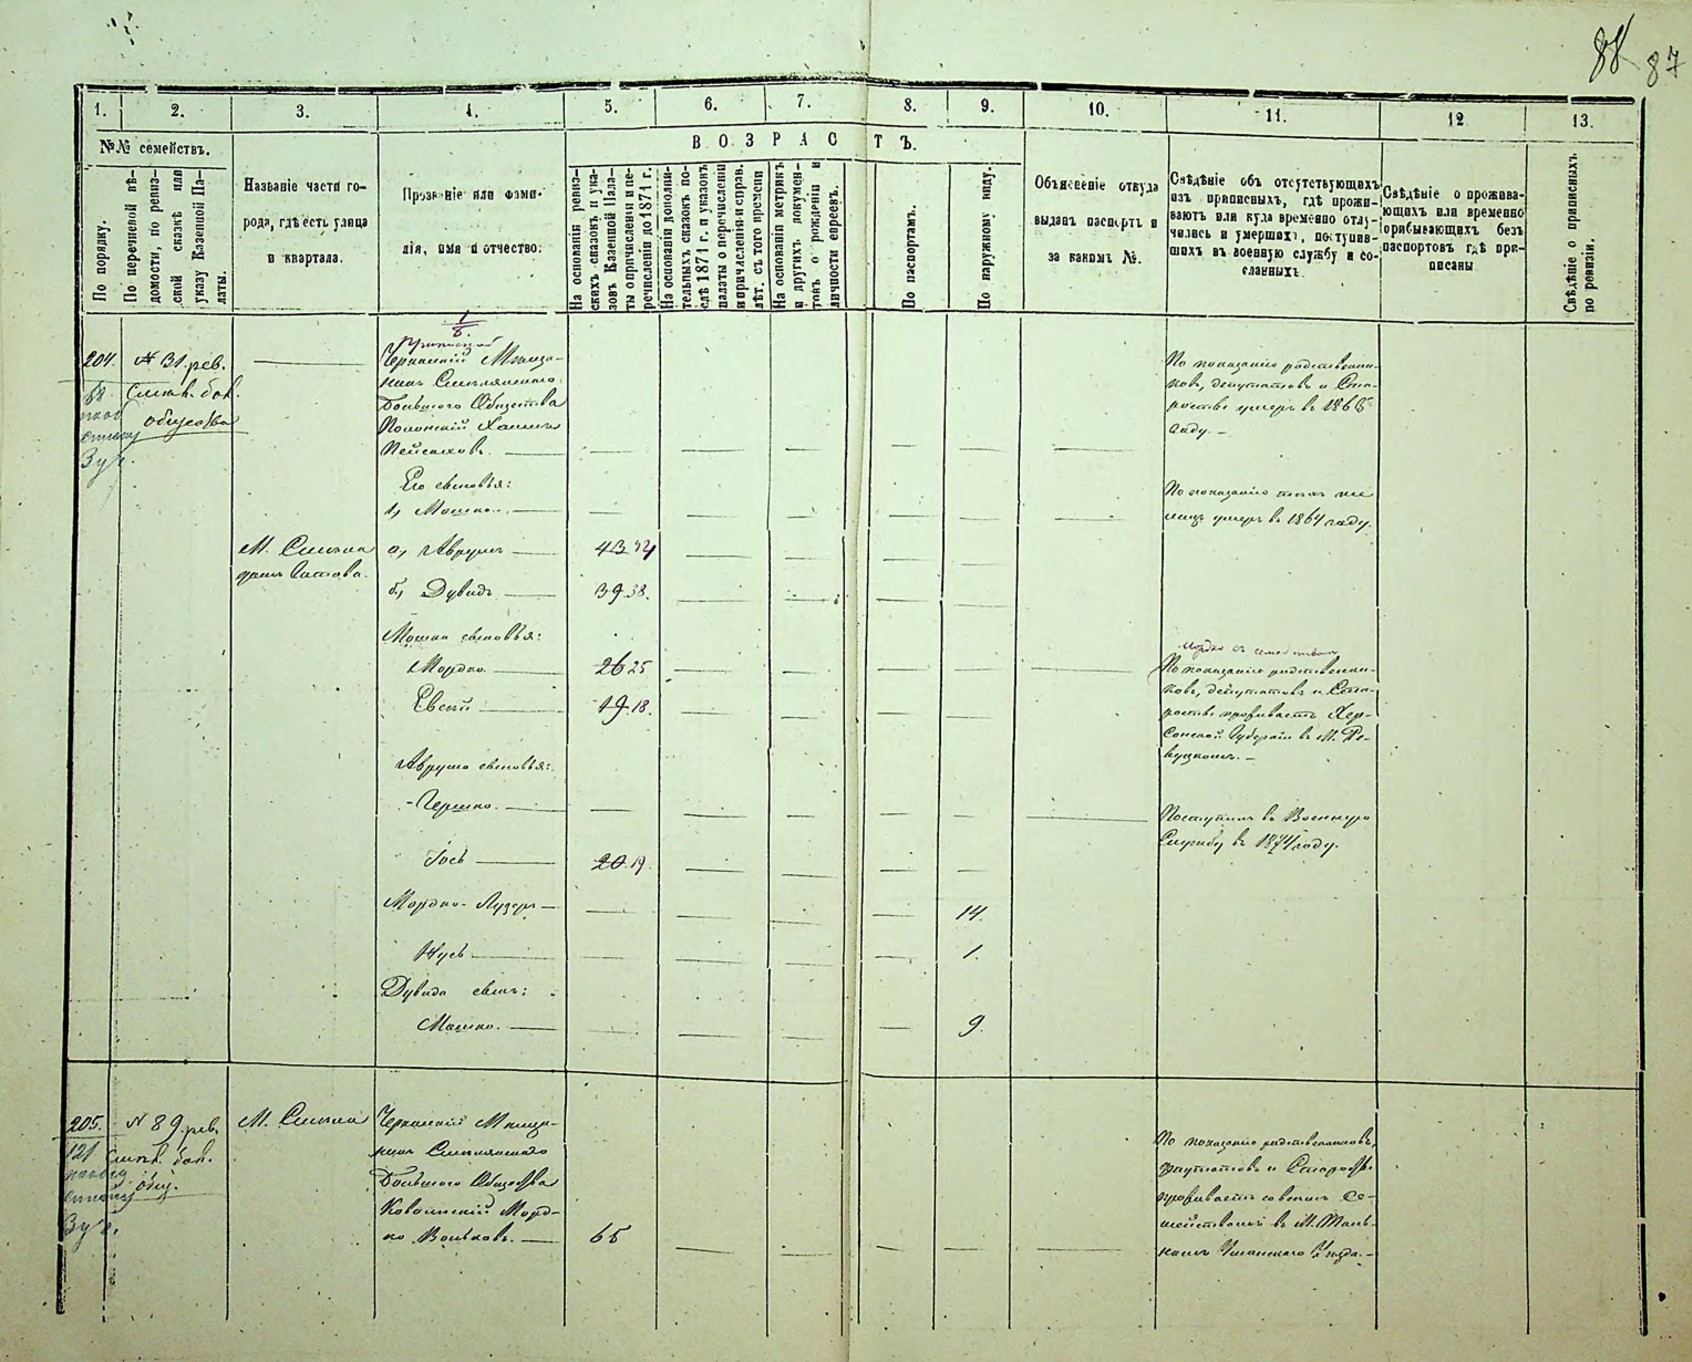 88 87
1. 2. 3. 4. 5. 6. 7. 8. 9. 10. 11. 12 13.
№№ семействъ.
В О З Р А С Т Ъ.
По порядку.
По перечневой вѣ-
домости, по ревиз-
ской сказкѣ или
указу Казенной Па-
латы.
Названіе части го-
рода, гдѣ есть улица
и квартала.
Прозваніе или фами-
лія, имя и отчество.
На основаніи ревиз-
скихъ сказокъ и ука-
зовъ Казенной Пала-
ты о причисленіи и пе-
речисленіи до 1871 г.
На основаніи дополни-
тельныхъ сказокъ по-
слѣ 1871 г. и указовъ
палаты о перечисленіи
и причисленіи и справ.
лѣт. съ того времени
На основаніи метрикъ
и другихъ докумен-
товъ о рожденіи и
личности евреевъ.
По паспортамъ.
По наружному виду.
Объясненіе откуда
выданъ паспортъ и
за какимъ №.
Свѣдѣніе объ отсутствующихъ
изъ приписныхъ, гдѣ прожи-
ваютъ или куда временно отлу-
чились и умершихъ, поступив-
шихъ въ военную службу и со-
сланныхъ.
Свѣдѣніе о прожива-
ющихъ или временно
прибывающихъ безъ
паспортовъ гдѣ при-
писаны
Свѣдѣніе о приписныхъ
по ревизіи.
204. № 31. рев.
общества
3 уч.
Черкаскій Мѣща-
нинъ Смѣлянскаго
Большого Общества
Полонскій
Пейсаховъ.
По показанію родственни-
ковъ, депутатовъ и Ста-
росты умеръ въ 186
году. –
Его сыновья:
1, Мошко.
По показанію тѣхъ же
лицъ умеръ въ 1864 году.
М. Смѣла
а, Аврумъ 43 42
б, Дувидъ 39. 38.
Мошка сыновья:
Мордко 26 25
Мордко съ семействомъ
По показанію родственни-
ковъ, депутатовъ и Ста-
росты проживаетъ Хер-
сонской Губерніи въ М.
Евсѣй 19. 18.
Аврума сыновья:
Гершко.
Поступилъ въ Военную
Службу въ 1874 году.
Іось 20. 19.
Мордко-Лузеръ 14.
Нусь 1.
Дувида сынъ:
Мошко. 9.
205. № 89 рев. М. Смѣла
121
общ.
3 уч.
Черкаскій Мѣща-
нинъ Смѣлянскаго
Большого Общества
Ковалискій Морд-
ко Вольковъ. 65
По показанію родственниковъ,
депутатовъ и Старосты
проживаетъ со всемъ Се-
мействомъ въ М. Таль-
номъ Уманскаго Уѣзда. –